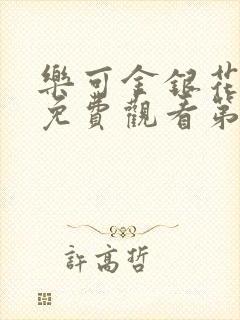 樂可金銀花
免費觀看第
許高哲